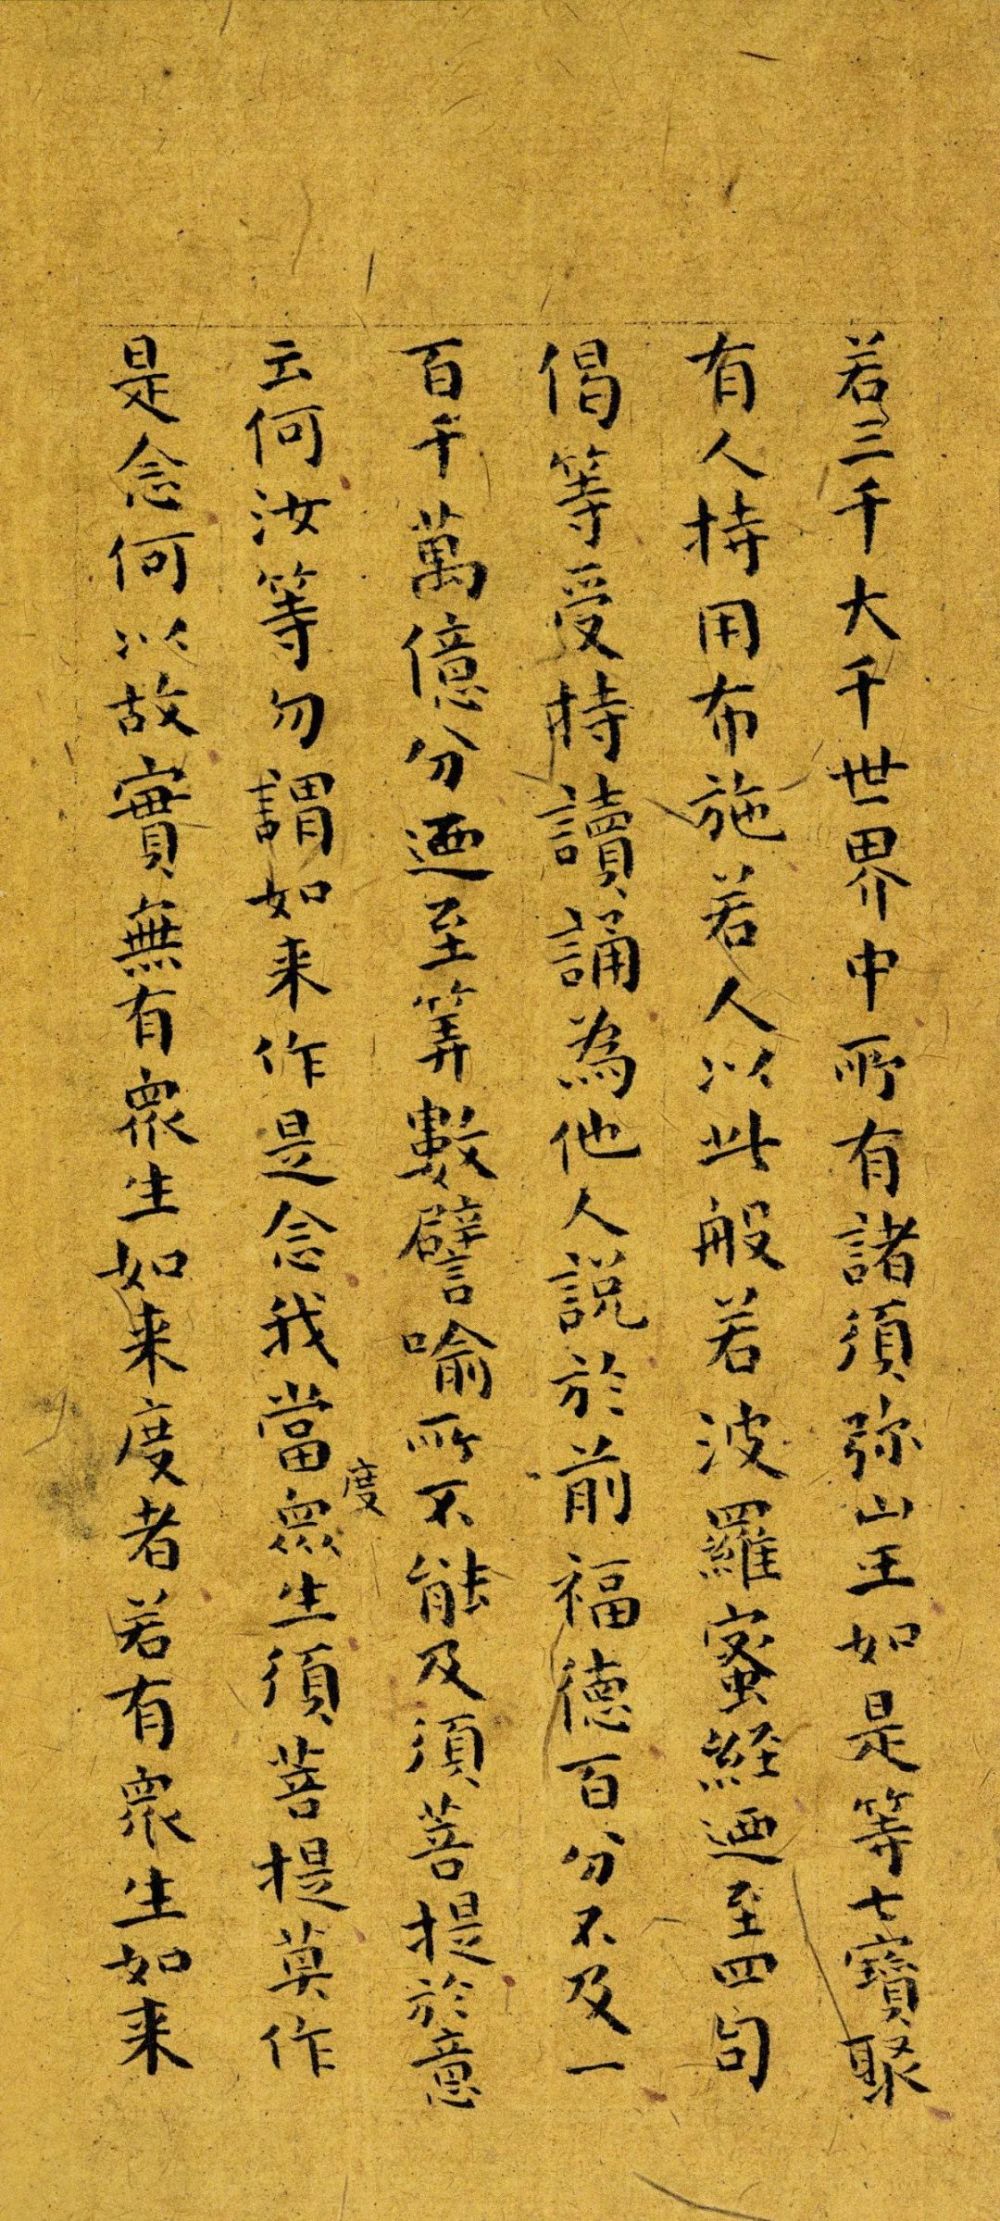 若三千大千世界中所有諸須弥山王如是等七寳聚
有人持用布施若人以此般若波羅蜜經迺至四句
偈等受持讀誦為他人説於前福徳百分不及一
百千萬億分迺至筭數譬喻所不能及須菩提於意
云何汝等勿謂如来作是念我當度衆生須菩提莫作
是念何以故實無有衆生如来度者若有衆生如来